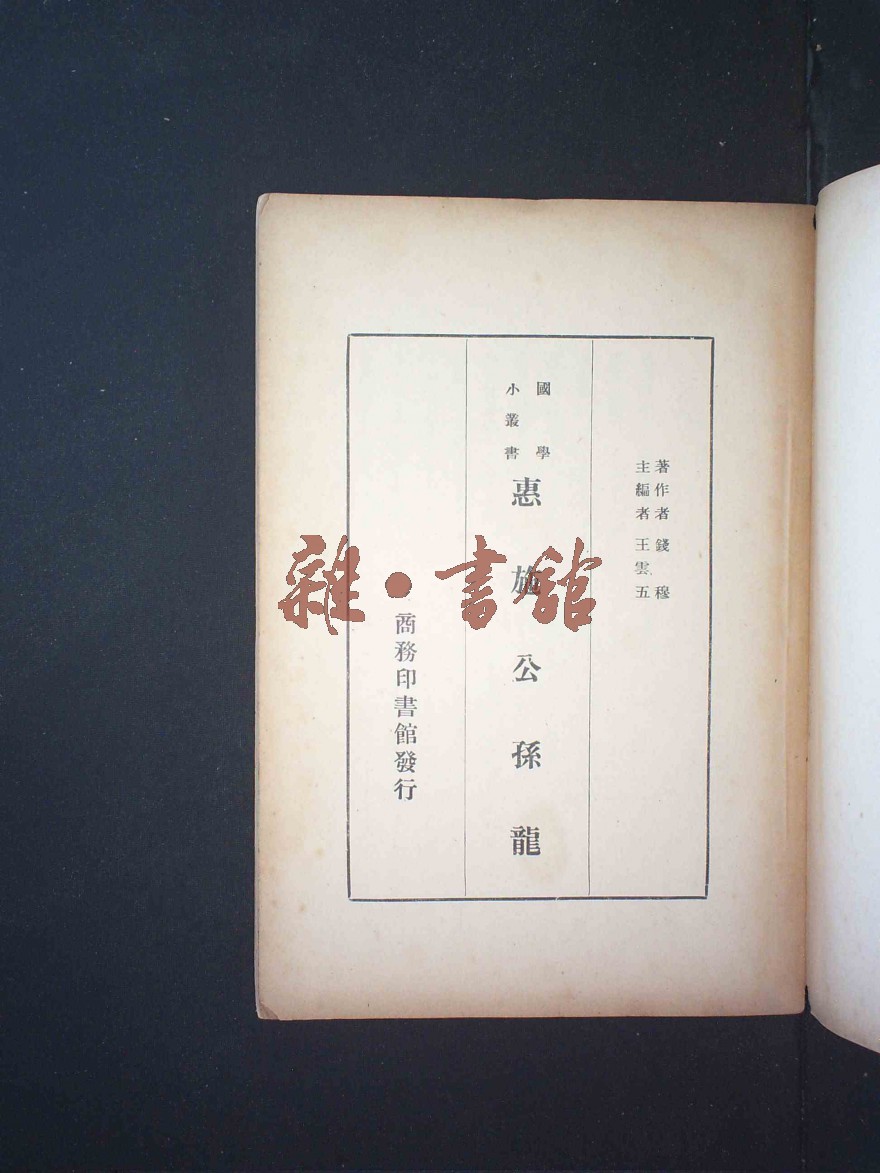 著作者 錢穆
主編者 王雲五
國學
小叢書
惠施公孫龍
商務印書館發行
雜·書館